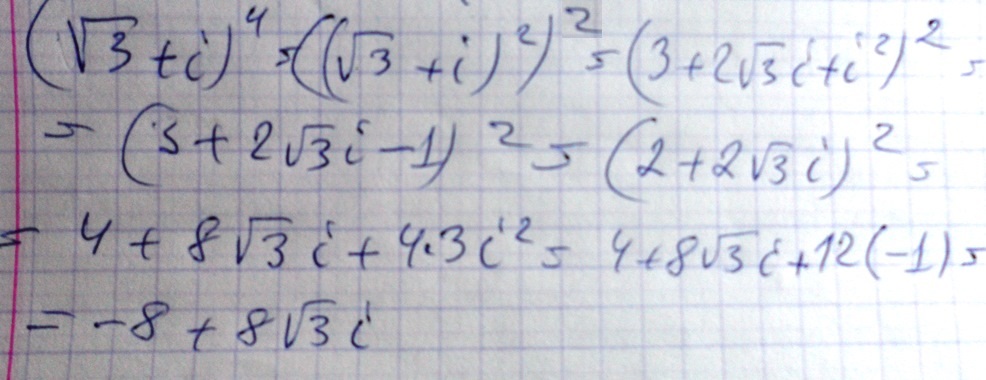 (√3 + i)⁴ = ((√3 + i)²)² = (3 + 2√3 i + i²)² =
= (3 + 2√3 i − 1)² = (2 + 2√3 i)² =
= 4 + 8√3 i + 4·3i² = 4 + 8√3 i + 12(−1) =
= −8 + 8√3 i